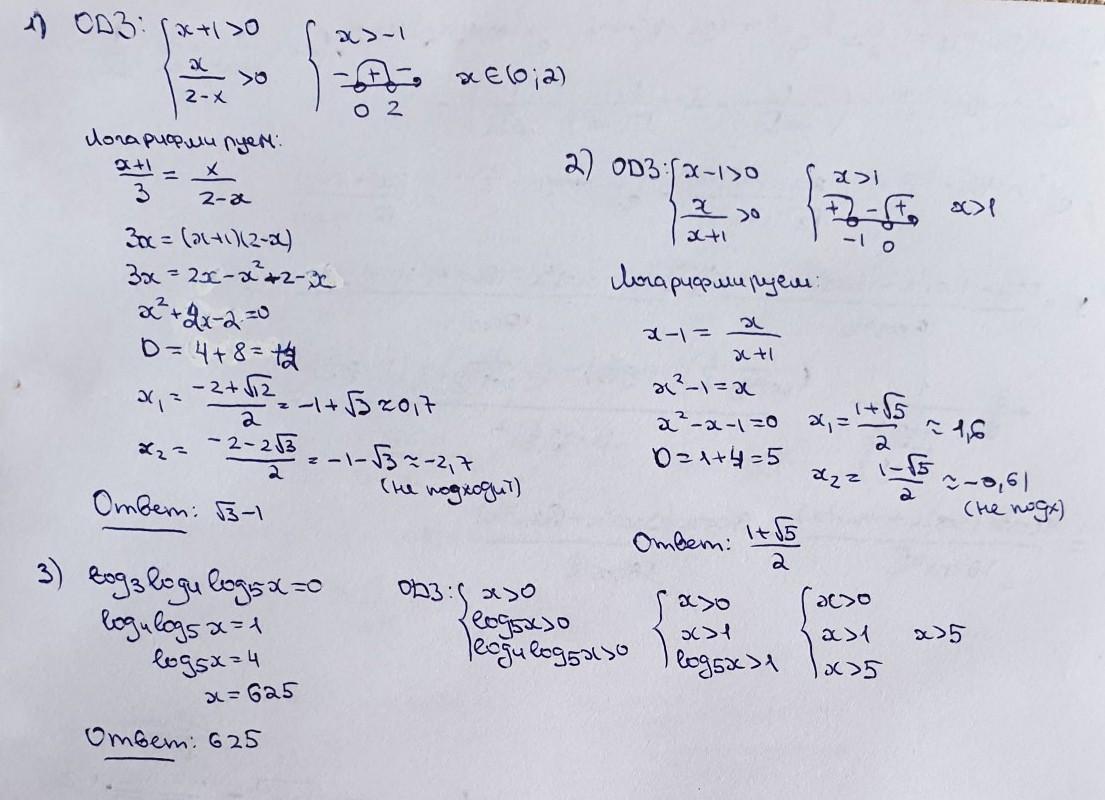 1) ОДЗ: { x+1>0 { x>-1
x/(2-x) >0 - + - 0 2 x∈(0;2)
Логарифмируем:
(x+1)/3 = x/(2-x)
3x=(x+1)(2-x)
3x=2x-x²+2-x
x²+2x-2=0
D= 4+8=12
x₁= (-2+√12)/2 = -1+√3≈0,7
x₂= (-2-2√3)/2 = -1-√3≈-2,7
(не подходит)
Ответ: √3-1
2) ОДЗ: { x-1>0 { x>1
x/(x+1) >0 + - + -1 0 x>1
Логарифмируем:
x-1= x/(x+1)
x²-1=x
x²-x-1=0
D=1+4=5
x₁= (1+√5)/2 ≈1,6
x₂= (1-√5)/2 ≈-0,61
(не подх)
Ответ: (1+√5)/2
3) log₃log₄log₅x=0
log₄log₅x=1
log₅x=4
x=625
Ответ: 625
ОДЗ: { x>0 { x>0 { x>0
log₅x>0 x>1 x>1 x>5
log₄log₅x>0 log₅x>1 x>5